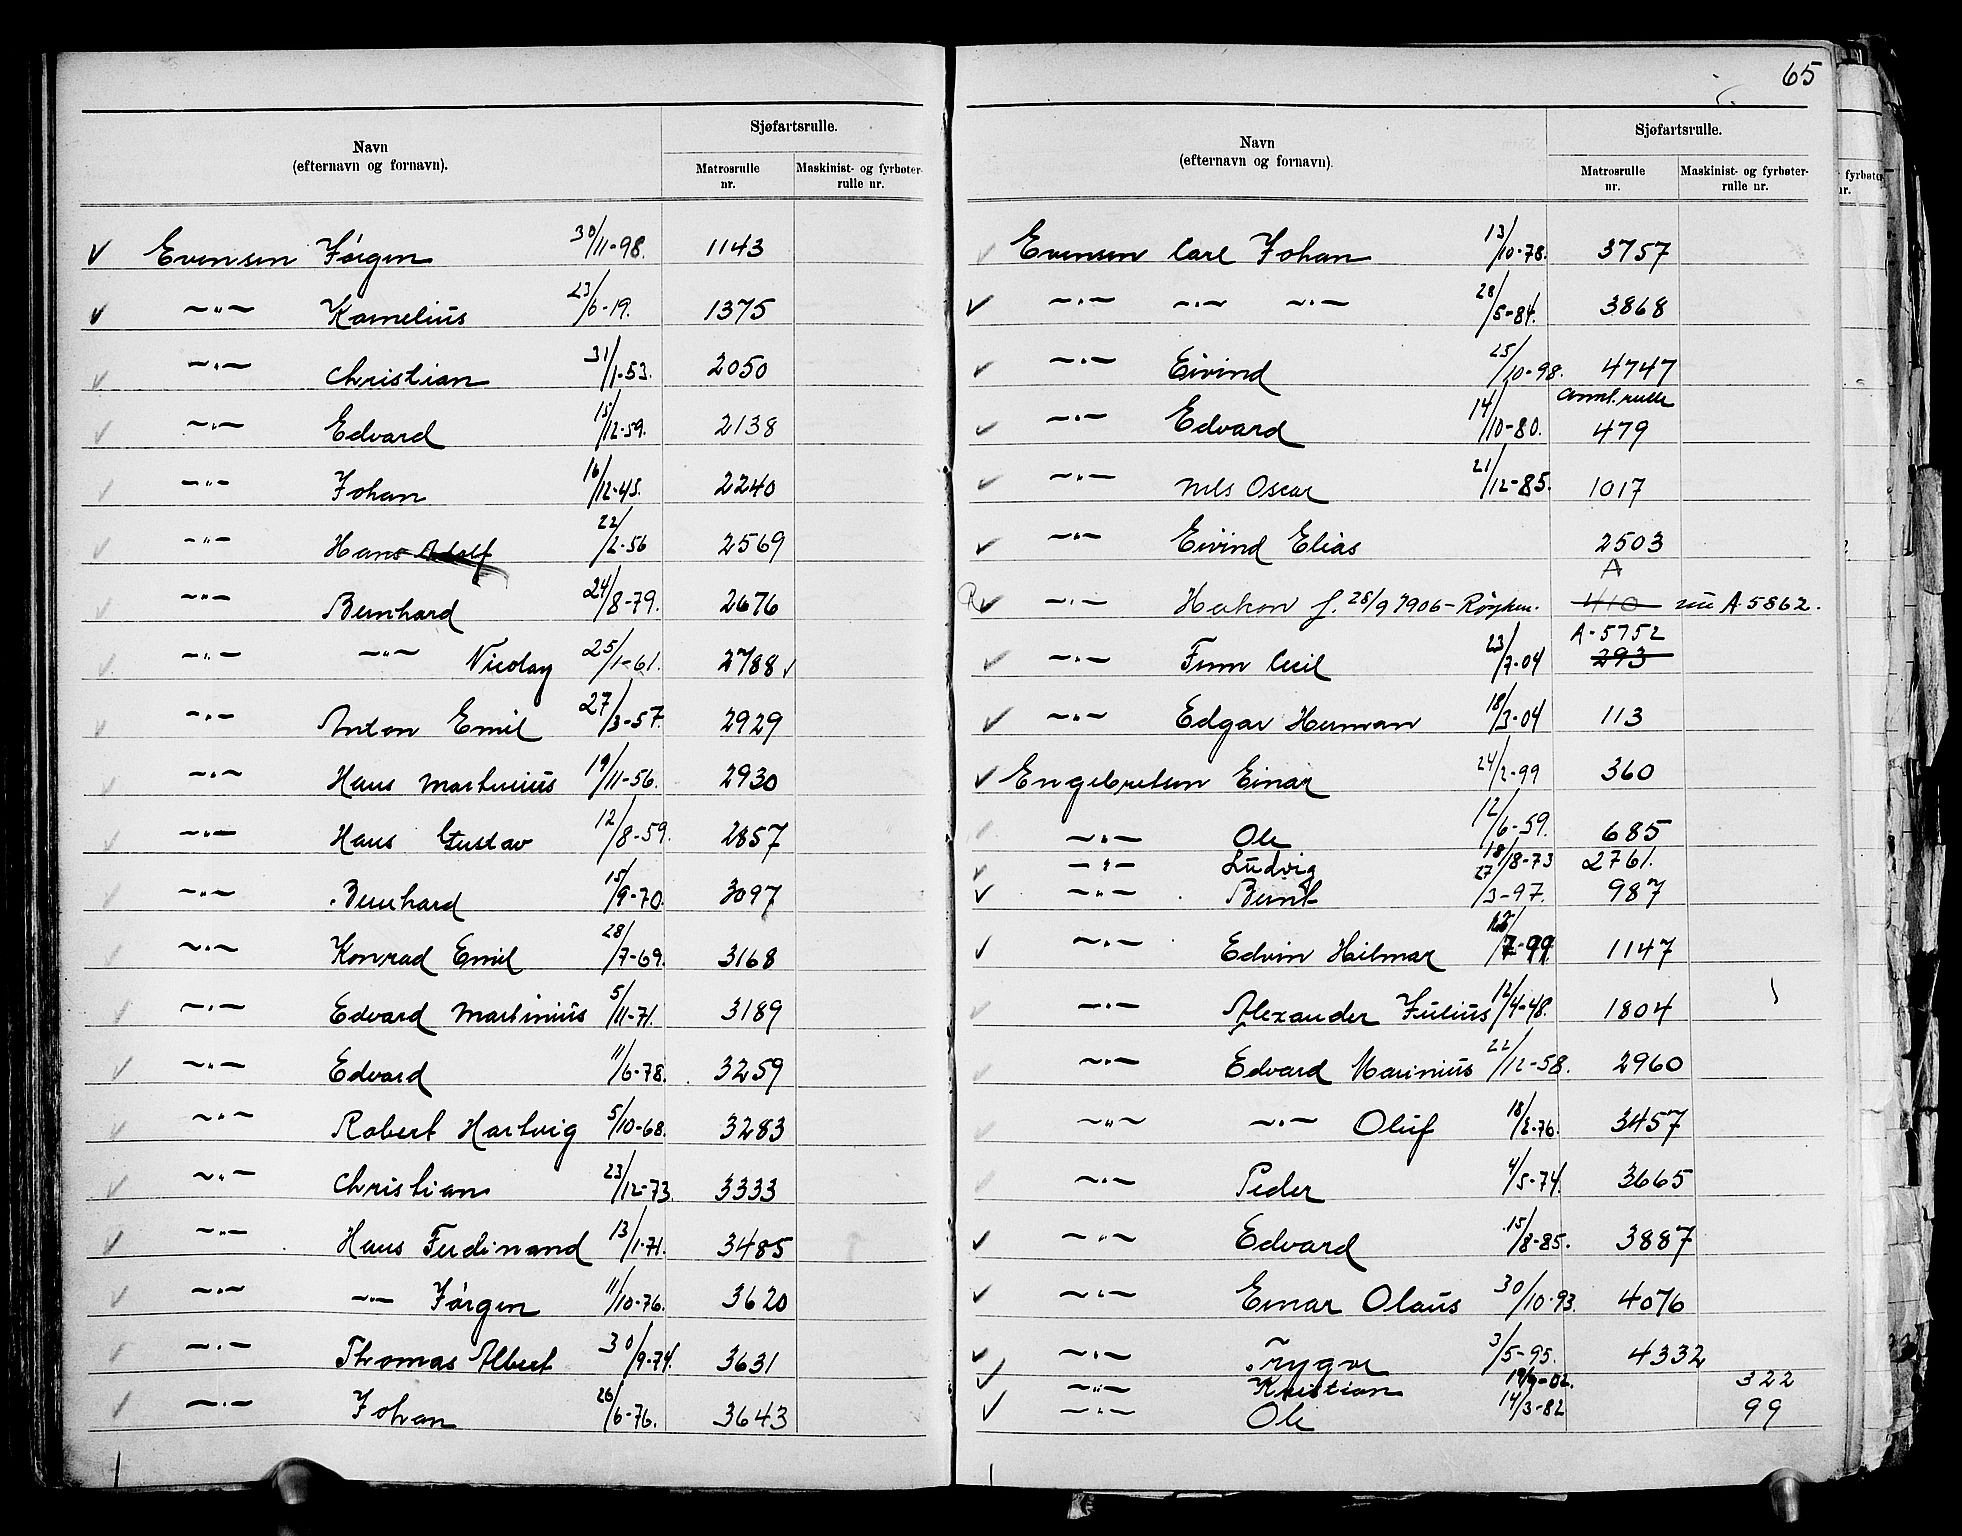 65
Navn
(efternavn og fornavn).
Sjøfartsrulle.
Matrosrulle nr.
Maskinist- og fyrbøter-rulle nr.
Evensen Jørgen 30/11-98. 1143
-"- Kornelius 23/6-19. 1375
-"- Christian 31/1-53. 2050
-"- Edvard 15/12-59. 2138
-"- Johan 16/12-45. 2240
-"- Hans Adolf 22/2-56 2569
-"- Bernhard 24/8-79. 2676
-"- -"- Nicolay 25/1-61. 2788
-"- Anton Emil 27/3-57. 2929
-"- Hans Martinius 19/11-56. 2930
-"- Hans Gustav 12/8-59. 2857
-"- Bernhard 15/9-70. 3097
-"- Konrad Emil 28/7-69. 3168
-"- Edvard Martinius 5/11-71. 3189
-"- Edvard 11/6-78. 3259
-"- Robert Hartvig 5/10-68. 3283
-"- Christian 23/12-73. 3333
-"- Hans Ferdinand 13/1-71. 3485
-"- -"- Jørgen 11/10-76. 3620
-"- Thomas Albert 30/9-74. 3631
-"- Johan 26/6-76. 3643
Navn
(efternavn og fornavn).
Sjøfartsrulle.
Matrosrulle nr.
Maskinist- og fyrbøter-rulle nr.
Evensen Carl Johan 13/10-78. 3757
-"- -"- -"- 28/5-84. 3868
-"- Eivind 25/10-98. 4747
Annt. rulle
-"- Edvard 14/10-80. 479
-"- Nils Oscar 21/12-85. 1017
-"- Eivind Elias 2503
A
R -"- Hakon f. 28/9 1906 - Røyken. 410 nu A 5862.
A-5752
-"- Finn Cecil 23/7-04 293
-"- Edgar Herman 18/3-04 113
Engebretsen Einar 24/2-99 360
-"- Ole 12/6-59. 685
-"- Ludvig 18/18-73 2761.
-"- Bernt 27/3-97. 987
-"- Edvin Hilmar /7-99. 1147
-"- Alexander Julius 12/4-48. 1804
-"- Edvard Marinius 22/12-58. 2960
-"- -"- Oluf 18/2-76. 3457
-"- Peder 4/5-74. 3665
-"- Edvard 15/8-85. 3887
-"- Einar Olaus 30/10-93. 4076
-"- Trygve 3/5-95. 4332
-"- Kristian 19/9-02. 322
-"- Ole 14/3-82 99
fyrbøter
nr.